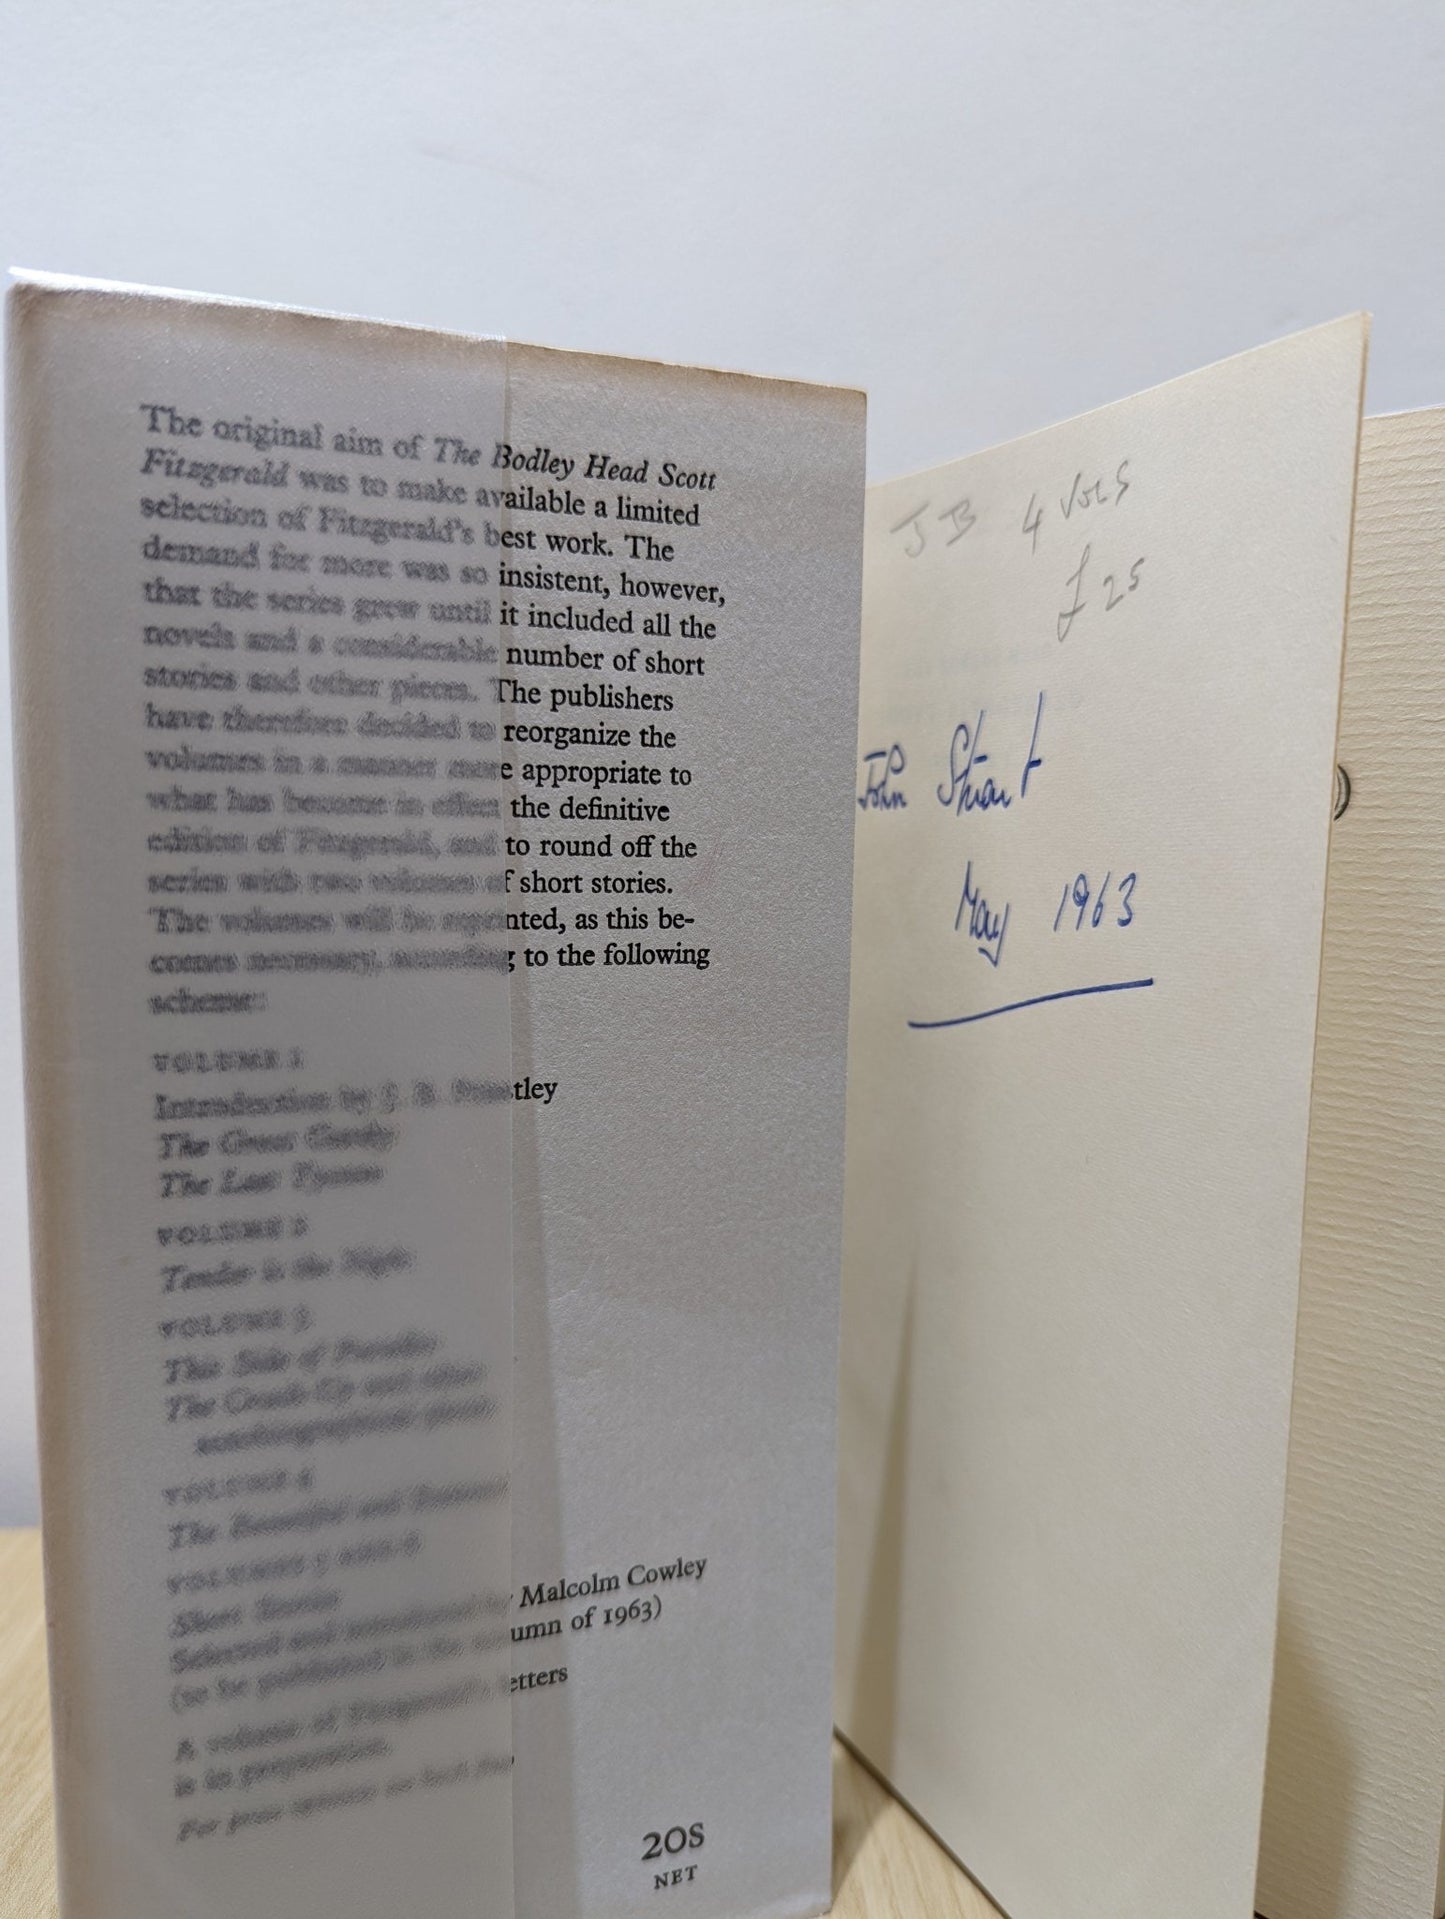 The original aim of The Bodley Head Scott
Fitzgerald was to make available a limited
selection of Fitzgerald's best work. The
demand for more was so insistent, however,
that the series grew until it included all the
novels and a considerable number of short
stories and other pieces. The publishers
have therefore decided to reorganize the
volumes in a manner more appropriate to
what has become in effect the definitive
edition of Fitzgerald, and to round off the
series with two volumes of short stories.
The volumes will be reprinted, as this be-
comes necessary, according to the following
scheme:
VOLUME 1
Introduction by J. B. Priestley
The Great Gatsby
The Last Tycoon
VOLUME 2
Tender is the Night
VOLUME 3
This Side of Paradise
The Crack-Up and other
autobiographical pieces
VOLUME 4
The Beautiful and Damned
VOLUMES 5 AND 6
Short Stories
Selected and introduced by Malcolm Cowley
(to be published in the autumn of 1963)
A volume of Fitzgerald's letters
is in preparation.
For press opinions see back flap
20S
NET
JB 4 Vols
£25
John Stuart
May 1963